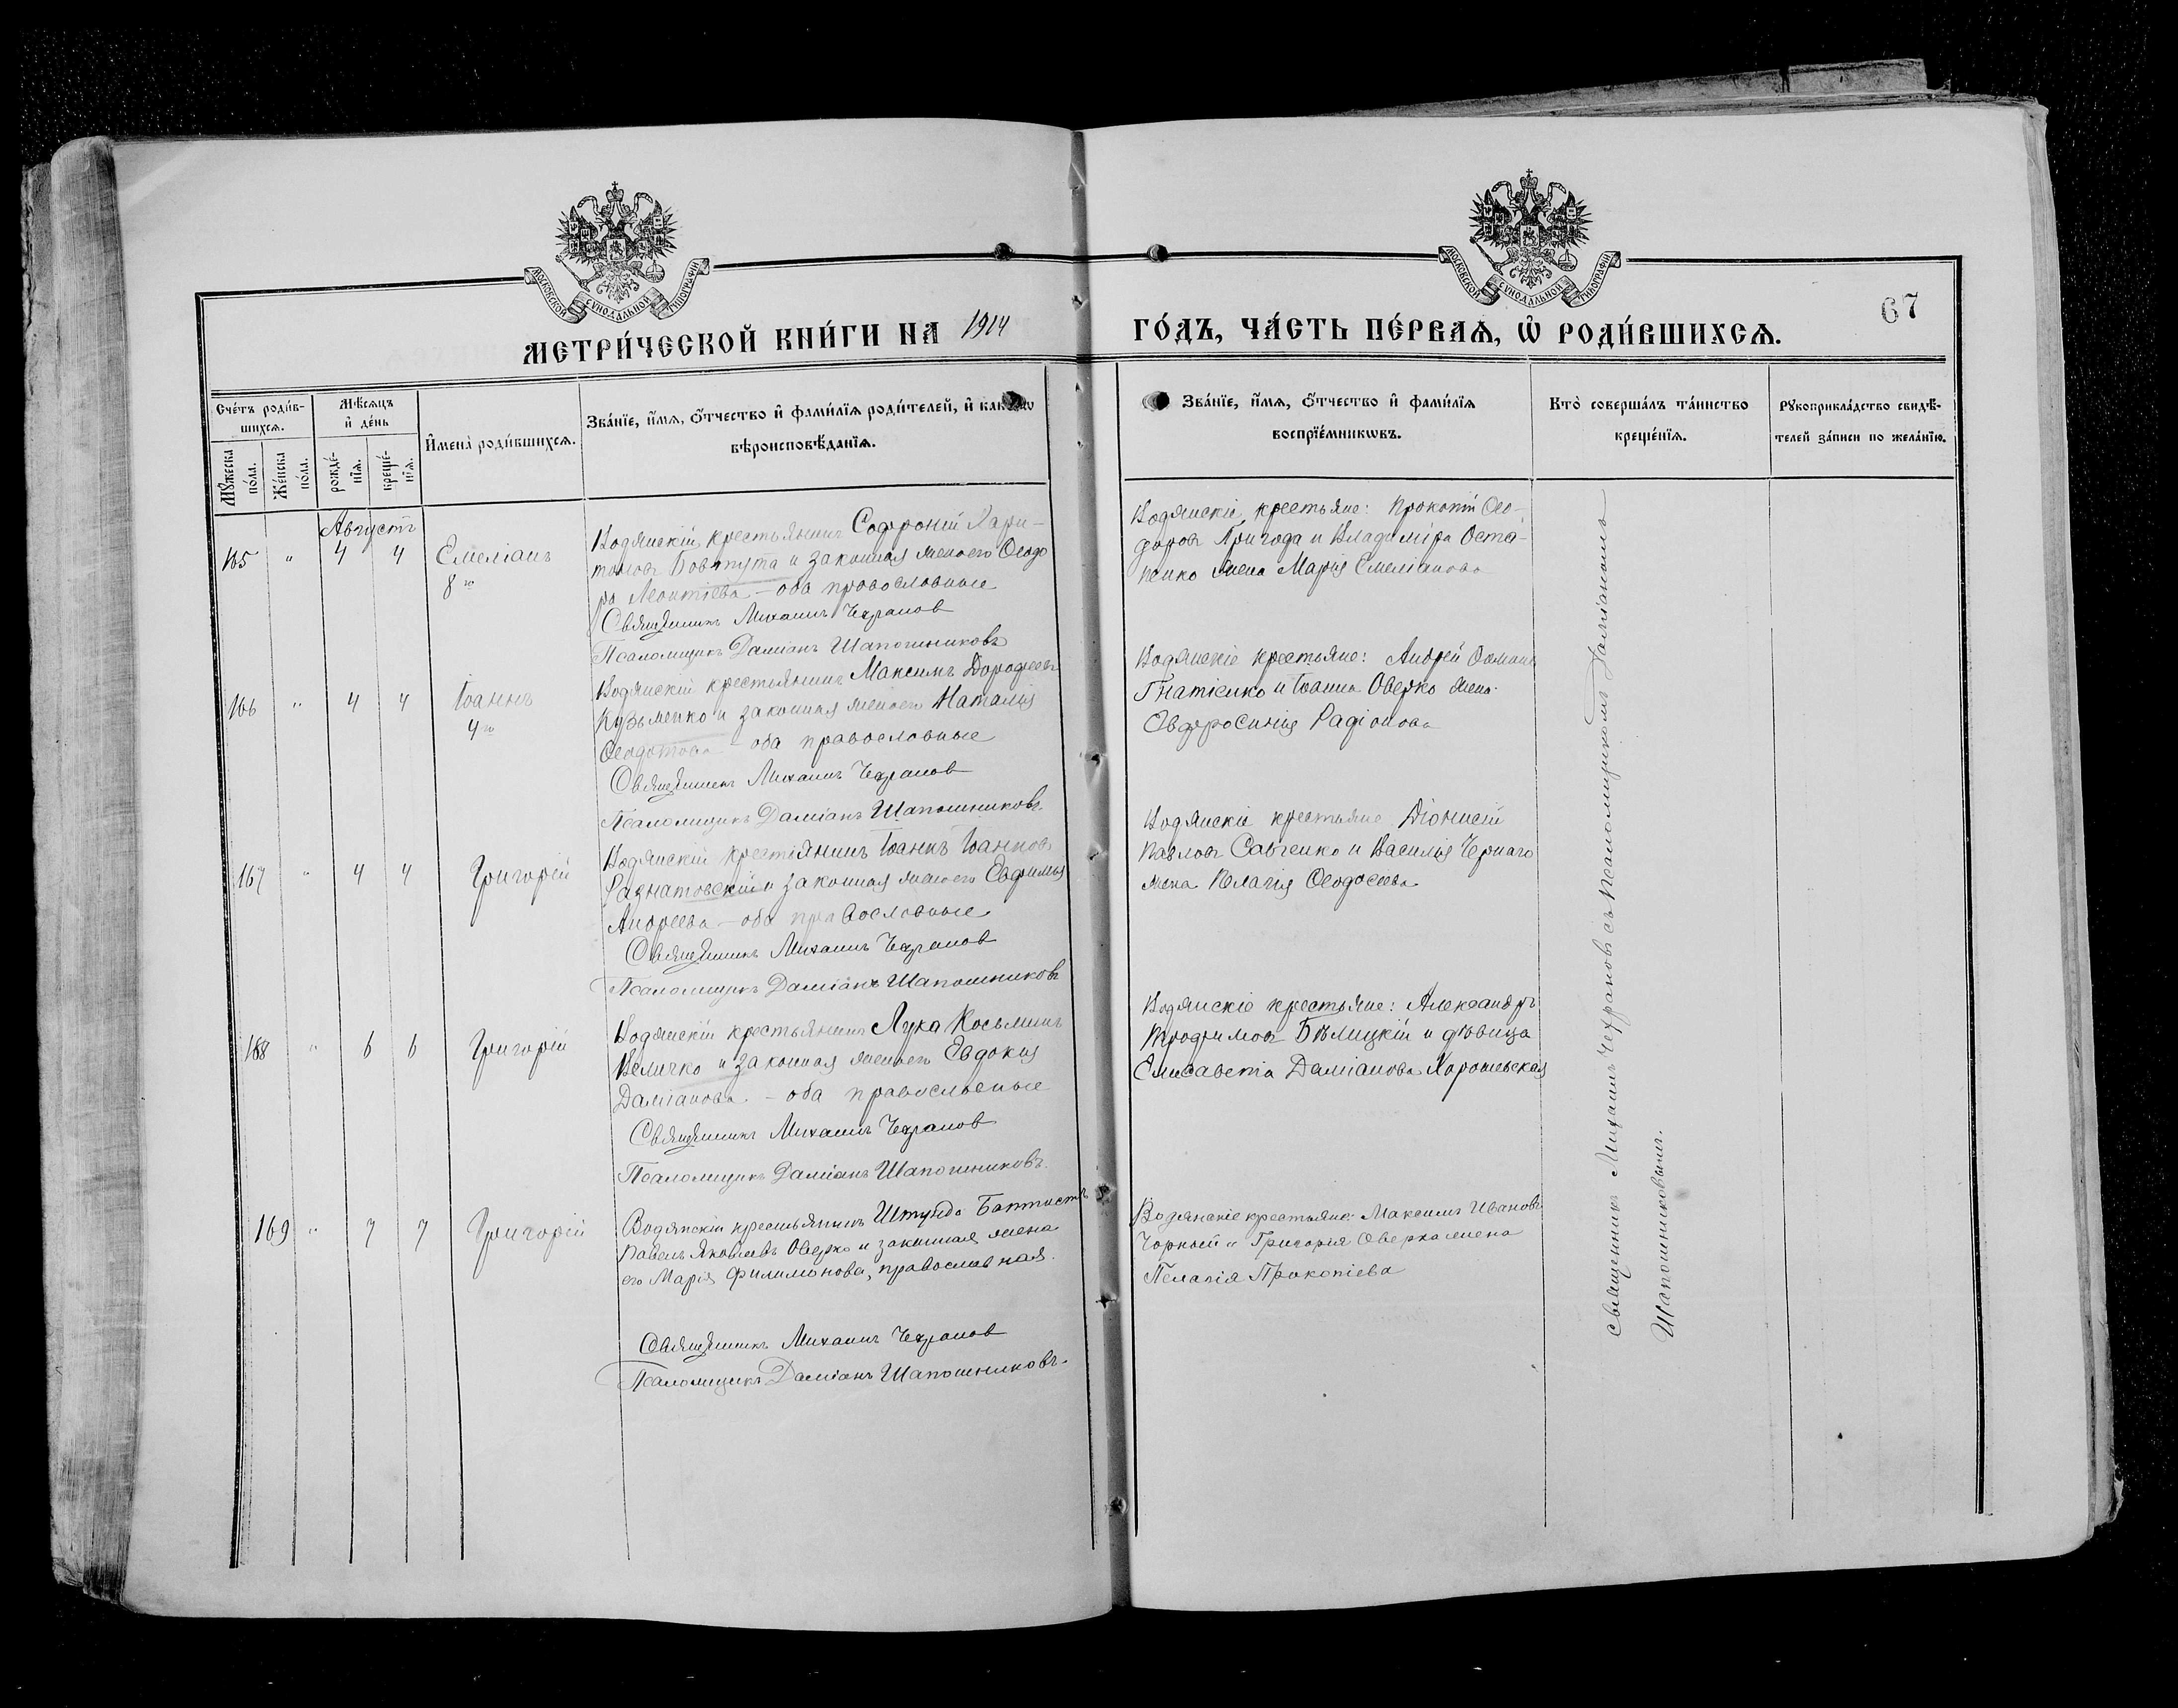 МОСКОВСКОЙ СѴНОДАЛЬНОЙ ТИПОГРАФІИ
МОСКОВСКОЙ СѴНОДАЛЬНОЙ ТИПОГРАФІИ
67
МЕТРИ́ЧЕСКОЙ КНИ́ГИ НА 1914 ГО́ДЪ, ЧА́СТЬ ПЕ́РВАѦ, Ѡ҆ РОДИ́ВШИХСѦ.
Сче́тъ роди́в-
шихсѧ.
Мꙋ́жеска по́ла.
Же́нска по́ла.
Мѣ́сѧцъ
и҆ де́нь
рожде́-
нїѧ.
креще́-
нїѧ.
И҆мена̀ роди́вшихсѧ.
Зва́нїе, и҆́мѧ, ѻ҆́тчество и҆ фами́лїѧ роди́телей, и҆ како́гѡ
вѣроисповѣ́данїѧ.
Зва́нїе, и҆́мѧ, ѻ҆́тчество и҆ фами́лїѧ
воспрїе́мникѡвъ.
Кто̀ соверша́лъ та́инство
креще́нїѧ.
Рꙋкоприкла́дство свидѣ́-
телей за́писи по жела́нїю.
Августъ
165 " 4 4 Емеліанъ
8го
Водянскій крестьянинъ Софроній Хари-
тоновъ Бовтута и законная жена его Ѳеодо
ра Леонтіева - оба православные
Священникъ Михаилъ Чехранов
Псаломщикъ Даміанъ Шапошниковъ
Водянскіе крестьяне: Прокопій Ѳео-
доровъ Пригода и Владиміра Оста-
пенко жена Марія Емеліанова
166 " 4 4 Іоаннъ
4го
Водянскій крестьянинъ Максимъ Дорофеевъ
Кузьменко и законная жена его Наталія
Ѳеодотова - оба православные
Священникъ Михаилъ Чехранов
Псаломщикъ Даміанъ Шапошниковъ.
Водянскіе крестьяне: Андрей
Гнатіенко и Іоанна Оверко жена
Евфросинія Радіонова
167 " 4 4 Григорій
Водянскій крестьянинъ Іоаннъ Іоанновъ
и законная жена его Евфимія
Андреева - оба православные
Священникъ Михаилъ Чехранов
Псаломщикъ Даміанъ Шапошниковъ
Водянскіе крестьяне Діонисій
Павловъ Савченко и Василія Чернаго
жена Пелагія Ѳеодосеева
168 " 6 6 Григорій
Водянскій крестьянинъ Лука Косьминъ
Величко и законная жена его Евдокія
Даміанова. - оба православные
Священникъ Михаилъ Чехранов
Псаломщикъ Даміанъ Шапошниковъ.
Водянскіе крестьяне: Александръ
Трофимовъ Бѣлицкій и дѣвица
Елисавета Даміанова Харошевская
169 " 7 7 Григорій
Водянскій крестьянинъ Штундо Баптистъ
Павелъ Яковлевъ Оверко и законная жена
его Марія Филимонова, православная.
Священникъ Михаилъ Чехранов
Псаломщикъ Даміанъ Шапошниковъ.
Водянскіе крестьяне: Максимъ Ивановъ
Чорный и Григорія Оверка жена
Пелагія Прокопіева
Священникъ Михаилъ Чехрановъ съ Псаломщикомъ Даміаномъ
Шапошниковымъ.